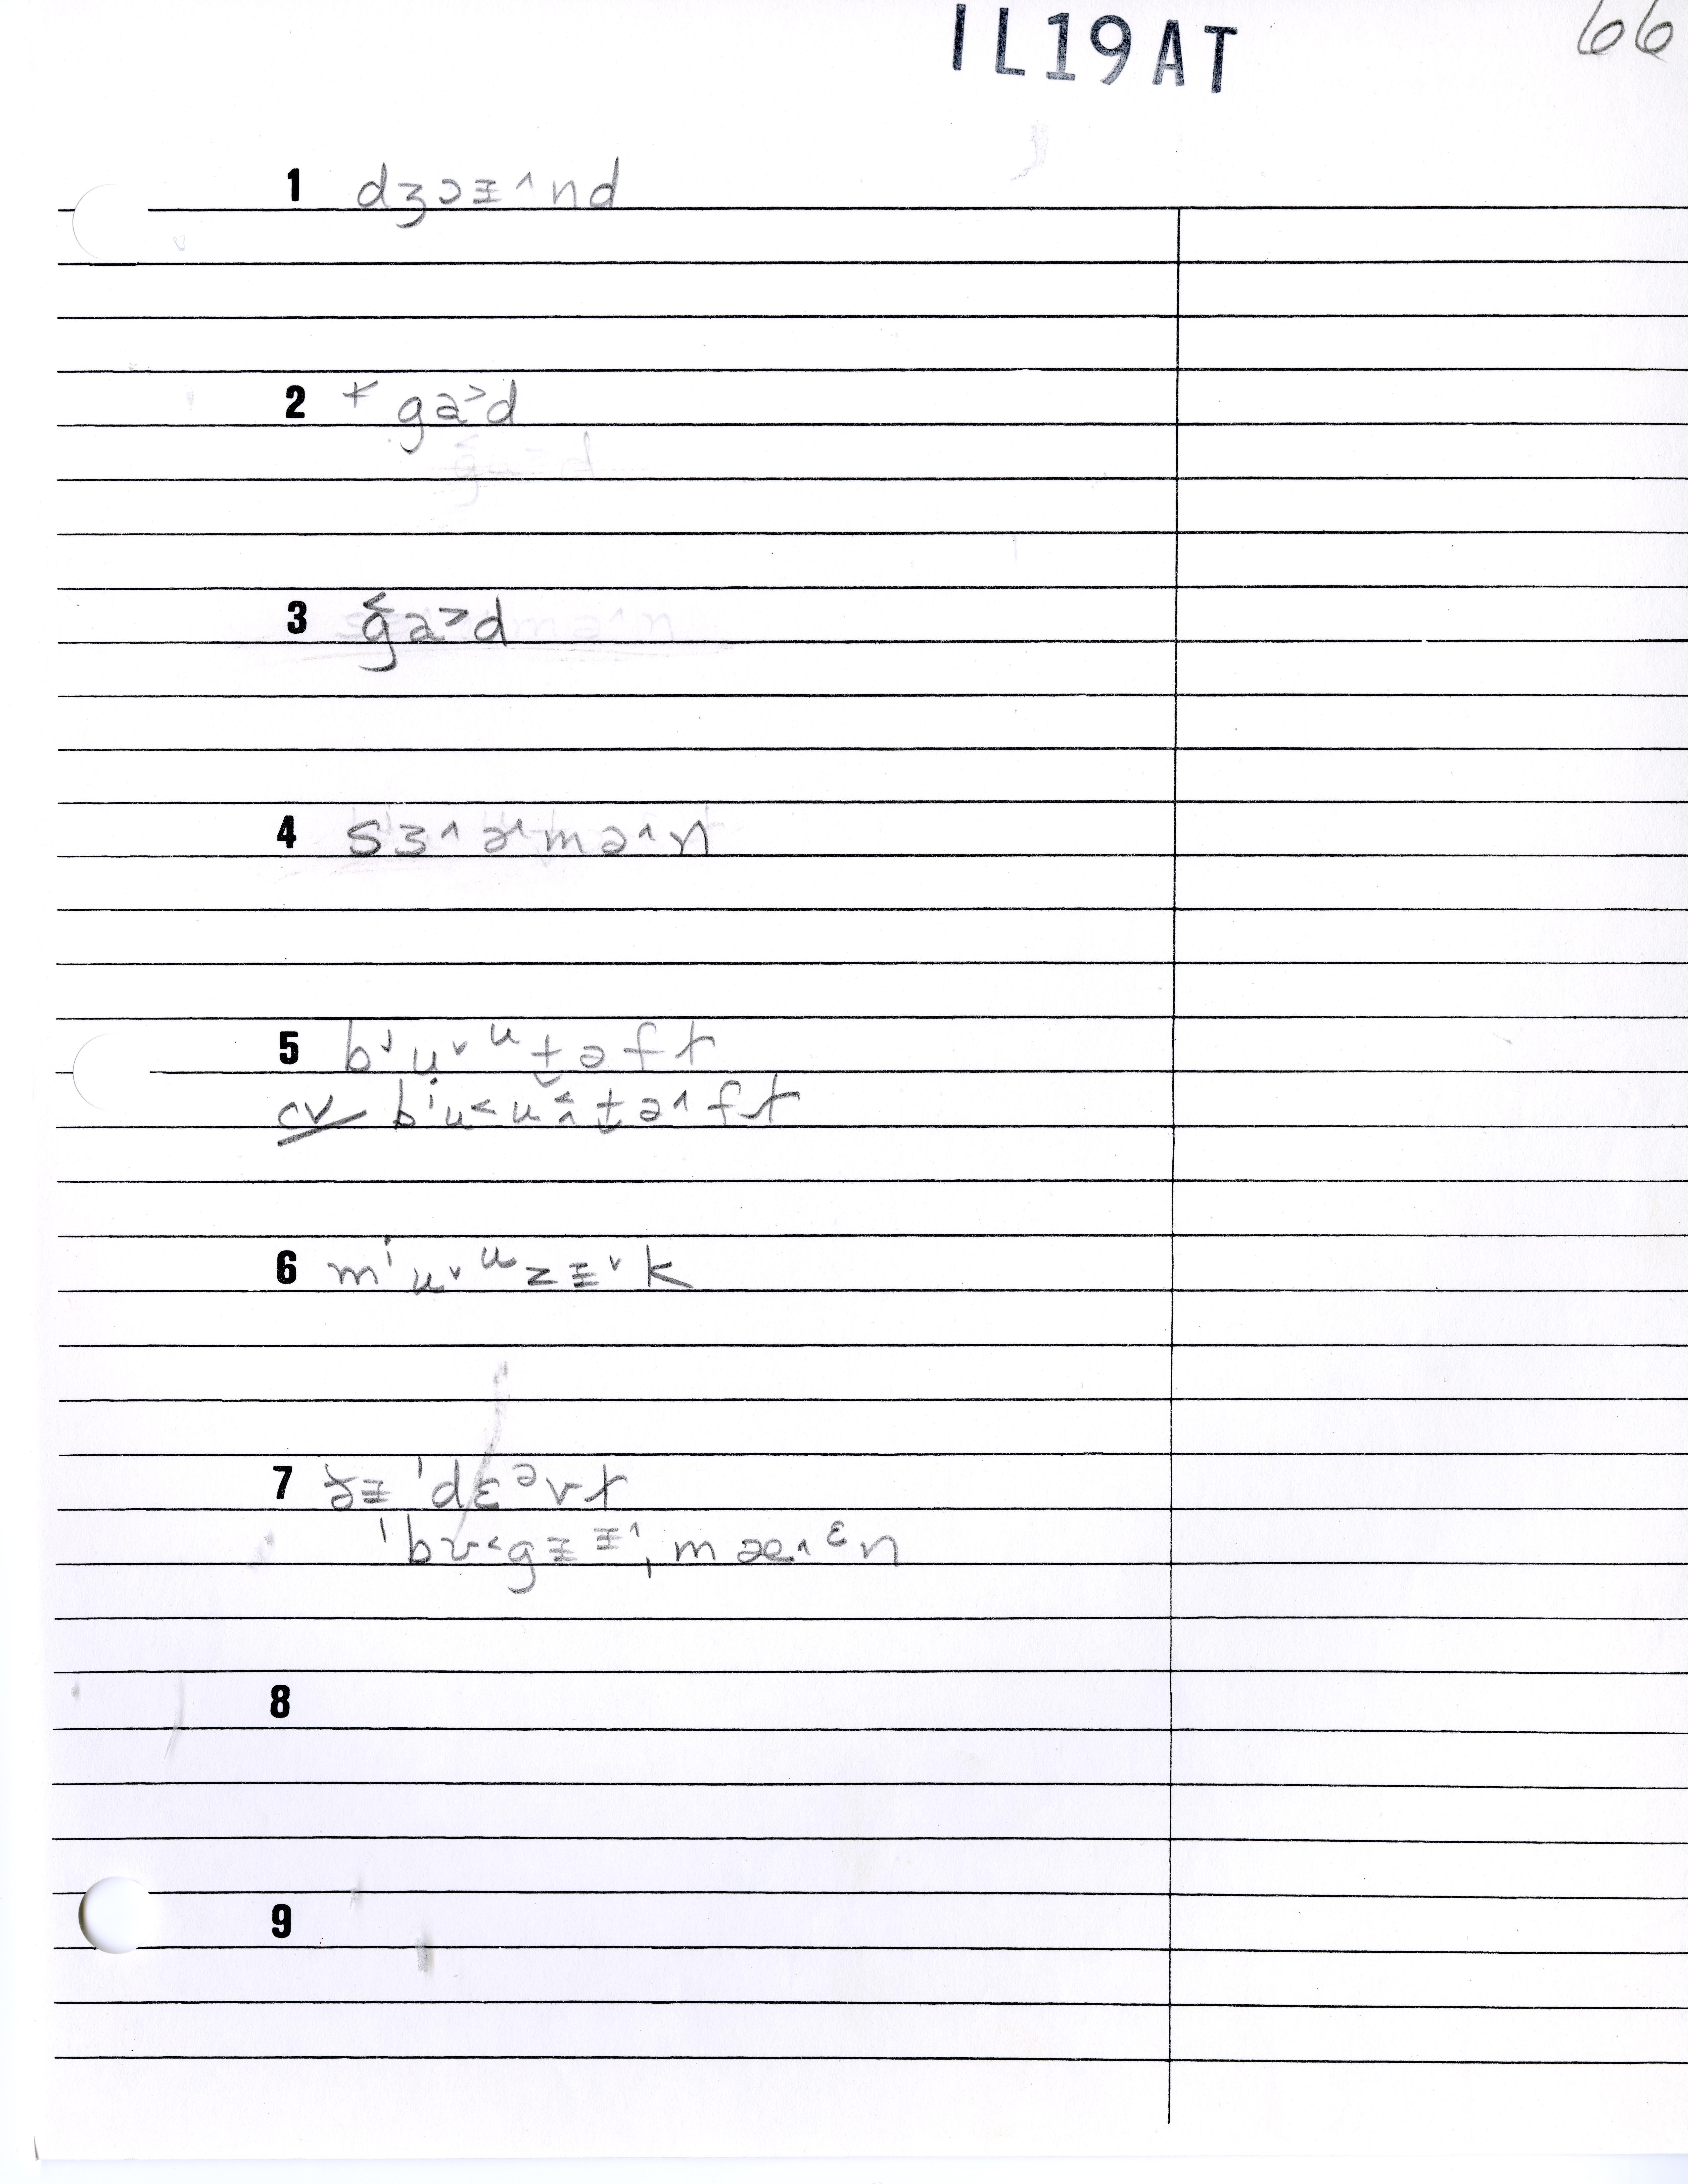 IL19AT
66
1 dʒɔɪ˄nd
2 + ga˃d
3 ǧa˃d
4 sɜ˄ɚ˄mə˄n
5 bʲu˅ᵘt̬əft
cv bⁱu˂u˂˄t̬ə˄ft
6 mⁱu˅ᵘzɪ˅k
7 ðɪ ˈdɛᵊvɫ
ˈbʊ˂gɪɪ˄ˌmæ˄ᵋn
8
9